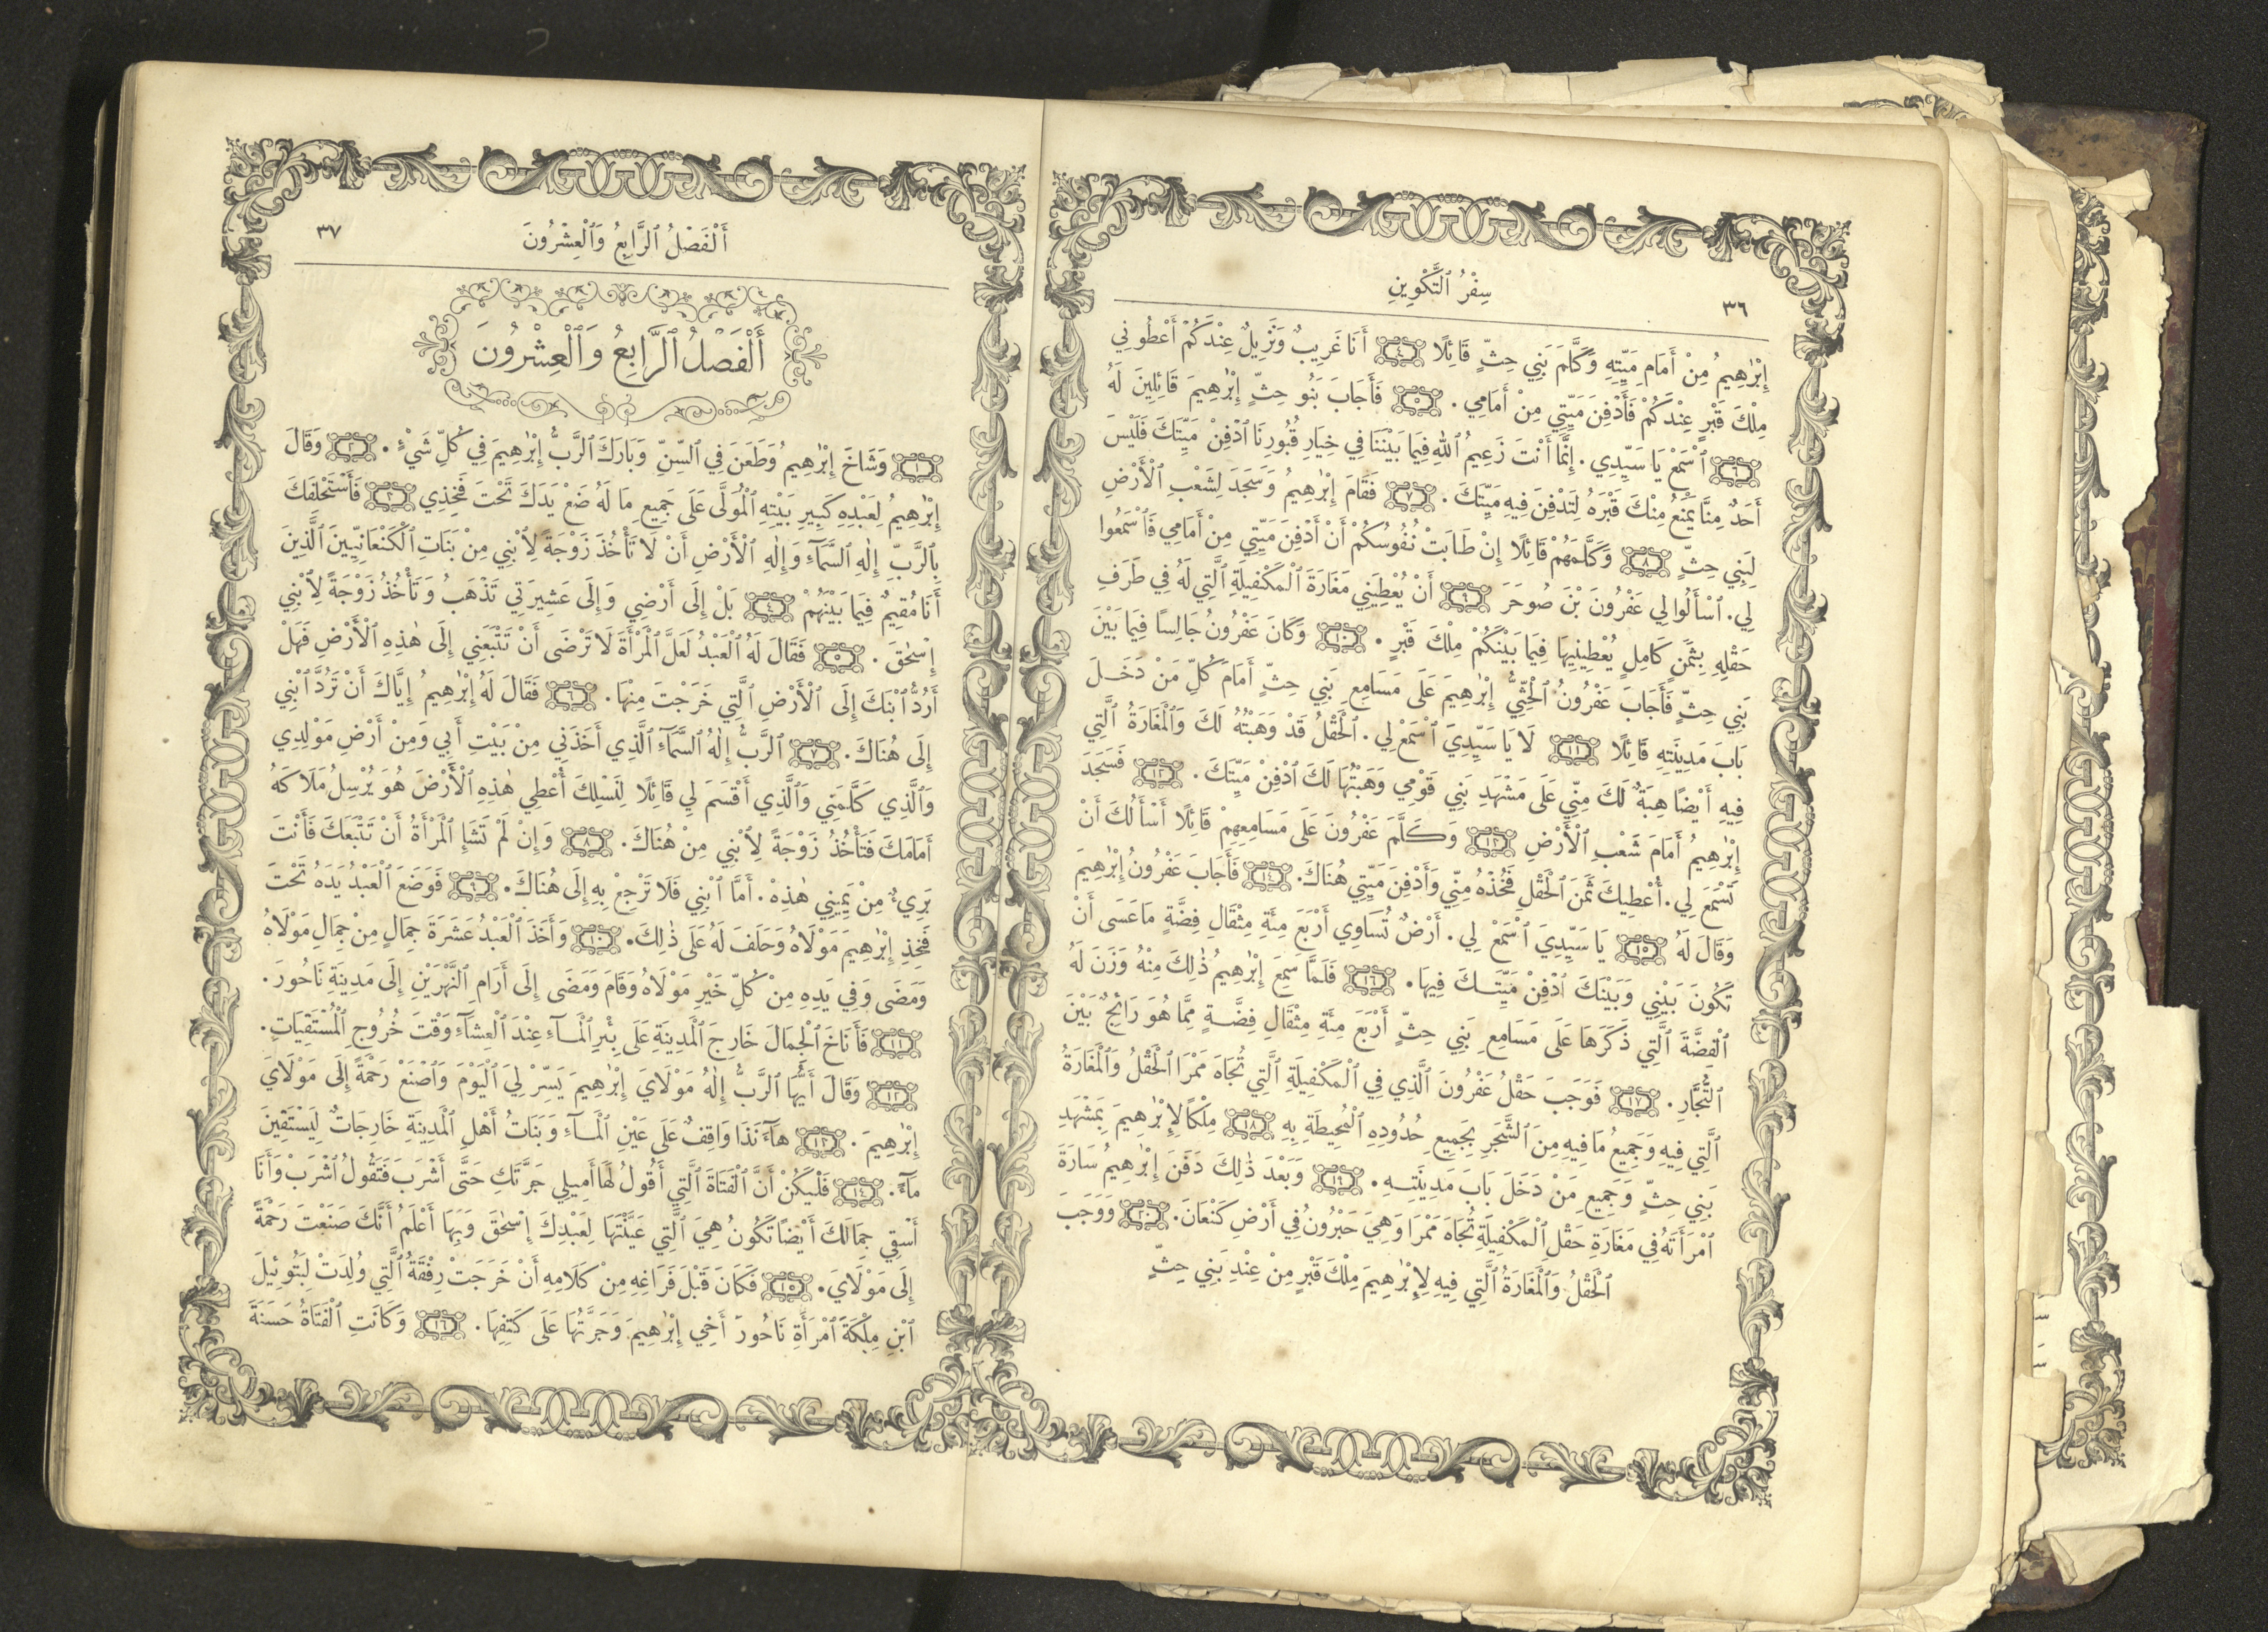 ٣٦
سِفْرُ ٱلتَّكْوِينِ
إِبْرٰهِيمُ مِنْ أَمَامِ مَيِّتِهِ وَكَلَّمَ بَنِي حِثٍّ قَائِلًا ﴿٤﴾ أَنَا غَرِيبٌ وَنَزِيلٌ عِنْدَكُمْ أَعْطُونِي
مِلْكَ قَبْرٍ عِنْدَكُمْ فَأَدْفِنَ مَيِّتِي مِنْ أَمَامِي . ﴿٥﴾ فَأَجَابَ بَنُو حِثٍّ إِبْرٰهِيمَ قَائِلِينَ لَهُ
﴿٦﴾ ٱسْمَعْ يَا سَيِّدِي . إِنَّمَا أَنْتَ زَعِيمُ ٱللهِ فِيمَا بَيْنَنَا فِي خِيَارِ قُبُورِنَا ٱدْفِنْ مَيِّتَكَ فَلَيْسَ
أَحَدٌ مِنَّا يَمْنَعُ مِنْكَ قَبْرَهُ لِتَدْفِنَ فِيهِ مَيِّتَكَ . ﴿٧﴾ فَقَامَ إِبْرٰهِيمُ وَسَجَدَ لِشَعْبِ ٱلْأَرْضِ
لِبَنِي حِثٍّ ﴿٨﴾ وَكَلَّمَهُمْ قَائِلًا إِنْ طَابَتْ نُفُوسُكُمْ أَنْ أَدْفِنَ مَيِّتِي مِنْ أَمَامِي فَٱسْمَعُوا
لِي . ٱسْأَلُوا لِي عَفْرُونَ بْنَ صُوحَرَ ﴿٩﴾ أَنْ يُعْطِيَنِي مَغَارَةَ ٱلْمَكْفِيلَةِ ٱلَّتِي لَهُ فِي طَرَفِ
حَقْلِهِ بِثَمَنٍ كَامِلٍ يُعْطِينِيهَا فِيمَا بَيْنَكُمْ مِلْكَ قَبْرٍ . ﴿١٠﴾ وَكَانَ عَفْرُونُ جَالِسًا فِيمَا بَيْنَ
بَنِي حِثٍّ فَأَجَابَ عَفْرُونُ ٱلْحِثِّيُّ إِبْرٰهِيمَ عَلَى مَسَامِعِ بَنِي حِثٍّ أَمَامَ كُلِّ مَنْ دَخَلَ
بَابَ مَدِينَتِهِ قَائِلًا ﴿١١﴾ لَا يَا سَيِّدِيَ ٱسْمَعْ لِي . ٱلْحَقْلُ قَدْ وَهَبْتُهُ لَكَ وَٱلْمَغَارَةُ ٱلَّتِي
فِيهِ أَيْضًا هِبَةٌ لَكَ مِنِّي عَلَى مَشْهَدِ بَنِي قَوْمِي وَهَبْتُهَا لَكَ ٱدْفِنْ مَيِّتَكَ . ﴿١٢﴾ فَسَجَدَ
إِبْرٰهِيمُ أَمَامَ شَعْبِ ٱلْأَرْضِ ﴿١٣﴾ وَكَلَّمَ عَفْرُونَ عَلَى مَسَامِعِهِمْ قَائِلًا أَسْأَلُكَ أَنْ
تَسْمَعَ لِي . أُعْطِيكَ ثَمَنَ ٱلْحَقْلِ فَخُذْهُ مِنِّي وَأَدْفِنَ مَيِّتِي هُنَاكَ . ﴿١٤﴾ فَأَجَابَ عَفْرُونُ إِبْرٰهِيمَ
وَقَالَ لَهُ ﴿١٥﴾ يَا سَيِّدِيَ ٱسْمَعْ لِي . أَرْضٌ تُسَاوِي أَرْبَعَ مِئَةِ مِثْقَالِ فِضَّةٍ مَا عَسَى أَنْ
تَكُونَ بَيْنِي وَبَيْنَكَ ٱدْفِنْ مَيِّتَكَ فِيهَا . ﴿١٦﴾ فَلَمَّا سَمِعَ إِبْرٰهِيمُ ذٰلِكَ مِنْهُ وَزَنَ لَهُ
ٱلْفِضَّةَ ٱلَّتِي ذَكَرَهَا عَلَى مَسَامِعِ بَنِي حِثٍّ أَرْبَعَ مِئَةِ مِثْقَالِ فِضَّةٍ مِمَّا هُوَ رَائِجٌ بَيْنَ
ٱلتُّجَّارِ . ﴿١٧﴾ فَوَجَبَ حَقْلُ عَفْرُونَ ٱلَّذِي فِي ٱلْمَكْفِيلَةِ ٱلَّتِي تُجَاهَ مَمْرَا ٱلْحَقْلُ وَٱلْمَغَارَةُ
ٱلَّتِي فِيهِ وَجَمِيعُ مَا فِيهِ مِنَ ٱلشَّجَرِ بِجَمِيعِ حُدُودِهِ ٱلْمُحِيطَةِ بِهِ ﴿١٨﴾ مِلْكًا لِإِبْرٰهِيمَ بِمَشْهَدِ
بَنِي حِثٍّ وَجَمِيعِ مَنْ دَخَلَ بَابَ مَدِينَتِهِ . ﴿١٩﴾ وَبَعْدَ ذٰلِكَ دَفَنَ إِبْرٰهِيمُ سَارَةَ
ٱمْرَأَتَهُ فِي مَغَارَةِ حَقْلِ ٱلْمَكْفِيلَةِ تُجَاهَ مَمْرَا وَهِيَ حَبْرُونُ فِي أَرْضِ كَنْعَانَ . ﴿٢٠﴾ وَوَجَبَ
ٱلْحَقْلُ وَٱلْمَغَارَةُ ٱلَّتِي فِيهِ لِإِبْرٰهِيمَ مِلْكَ قَبْرٍ مِنْ عِنْدِ بَنِي حِثٍّ
أَلْفَصْلُ ٱلرَّابِعُ وَٱلْعِشْرُونَ
٣٧
أَلْفَصْلُ ٱلرَّابِعُ وَٱلْعِشْرُونَ
﴿١﴾ وَشَاخَ إِبْرٰهِيمُ وَطَعَنَ فِي ٱلسِّنِّ وَبَارَكَ ٱلرَّبُّ إِبْرٰهِيمَ فِي كُلِّ شَيْءٍ . ﴿٢﴾ وَقَالَ
إِبْرٰهِيمُ لِعَبْدِهِ كَبِيرِ بَيْتِهِ ٱلْمُوَلَّى عَلَى جَمِيعِ مَا لَهُ ضَعْ يَدَكَ تَحْتَ فَخِذِي ﴿٣﴾ فَأَسْتَحْلِفَكَ
بِٱلرَّبِّ إِلٰهِ ٱلسَّمَآءِ وَإِلٰهِ ٱلْأَرْضِ أَنْ لَا تَأْخُذَ زَوْجَةً لِٱبْنِي مِنْ بَنَاتِ ٱلْكَنْعَانِيِّينَ ٱلَّذِينَ
أَنَا مُقِيمٌ فِيمَا بَيْنَهُمْ ﴿٤﴾ بَلْ إِلَى أَرْضِي وَإِلَى عَشِيرَتِي تَذْهَبُ وَتَأْخُذُ زَوْجَةً لِٱبْنِي
إِسْحٰقَ . ﴿٥﴾ فَقَالَ لَهُ ٱلْعَبْدُ لَعَلَّ ٱلْمَرْأَةَ لَا تَرْضَى أَنْ تَتْبَعَنِي إِلَى هٰذِهِ ٱلْأَرْضِ فَهَلْ
أَرُدُّ ٱبْنَكَ إِلَى ٱلْأَرْضِ ٱلَّتِي خَرَجْتَ مِنْهَا . ﴿٦﴾ فَقَالَ لَهُ إِبْرٰهِيمُ إِيَّاكَ أَنْ تَرُدَّ ٱبْنِي
إِلَى هُنَاكَ . ﴿٧﴾ ٱلرَّبُّ إِلٰهُ ٱلسَّمَآءِ ٱلَّذِي أَخَذَنِي مِنْ بَيْتِ أَبِي وَمِنْ أَرْضِ مَوْلِدِي
وَٱلَّذِي كَلَّمَنِي وَٱلَّذِي أَقْسَمَ لِي قَائِلًا لِنَسْلِكَ أُعْطِي هٰذِهِ ٱلْأَرْضَ هُوَ يُرْسِلُ مَلَاكَهُ
أَمَامَكَ فَتَأْخُذُ زَوْجَةً لِٱبْنِي مِنْ هُنَاكَ . ﴿٨﴾ وَإِنْ لَمْ تَشَإِ ٱلْمَرْأَةُ أَنْ تَتْبَعَكَ فَأَنْتَ
بَرِيءٌ مِنْ يَمِينِي هٰذِهْ . أَمَّا ٱبْنِي فَلَا تَرْجِعْ بِهِ إِلَى هُنَاكَ . ﴿٩﴾ فَوَضَعَ ٱلْعَبْدُ يَدَهُ تَحْتَ
فَخِذِ إِبْرٰهِيمَ مَوْلَاهُ وَحَلَفَ لَهُ عَلَى ذٰلِكَ . ﴿١٠﴾ وَأَخَذَ ٱلْعَبْدُ عَشَرَةَ جِمَالٍ مِنْ جِمَالِ مَوْلَاهُ
وَمَضَى وَفِي يَدِهِ مِنْ كُلِّ خَيْرِ مَوْلَاهُ وَقَامَ وَمَضَى إِلَى أَرَامِ ٱلنَّهْرَيْنِ إِلَى مَدِينَةِ نَاحُورَ .
﴿١١﴾ فَأَنَاخَ ٱلْجِمَالَ خَارِجَ ٱلْمَدِينَةِ عَلَى بِئْرِ ٱلْمَآءِ عِنْدَ ٱلْعِشَآءِ وَقْتَ خُرُوجِ ٱلْمُسْتَقِيَاتِ .
﴿١٢﴾ وَقَالَ أَيُّهَا ٱلرَّبُّ إِلٰهُ مَوْلَايَ إِبْرٰهِيمَ يَسِّرْ لِيَ ٱلْيَوْمَ وَٱصْنَعْ رَحْمَةً إِلَى مَوْلَايَ
إِبْرٰهِيمَ . ﴿١٣﴾ هَآءَنَذَا وَاقِفٌ عَلَى عَيْنِ ٱلْمَآءِ وَبَنَاتُ أَهْلِ ٱلْمَدِينَةِ خَارِجَاتٌ لِيَسْتَقِينَ
مَآءً . ﴿١٤﴾ فَلْيَكُنْ أَنَّ ٱلْفَتَاةَ ٱلَّتِي أَقُولُ لَهَا أَمِيلِي جَرَّتَكِ حَتَّى أَشْرَبَ فَتَقُولُ ٱشْرَبْ وَأَنَا
أَسْقِي جِمَالَكَ أَيْضًا تَكُونُ هِيَ ٱلَّتِي عَيَّنْتَهَا لِعَبْدِكَ إِسْحٰقَ وَبِهَا أَعْلَمُ أَنَّكَ صَنَعْتَ رَحْمَةً
إِلَى مَوْلَايَ . ﴿١٥﴾ فَكَانَ قَبْلَ فَرَاغِهِ مِنْ كَلَامِهِ أَنْ خَرَجَتْ رِفْقَةُ ٱلَّتِي وُلِدَتْ لِبَتُوئِيلَ
ٱبْنِ مِلْكَةَ ٱمْرَأَةِ نَاحُورَ أَخِي إِبْرٰهِيمَ وَجَرَّتُهَا عَلَى كَتِفِهَا . ﴿١٦﴾ وَكَانَتِ ٱلْفَتَاةُ حَسَنَةَ